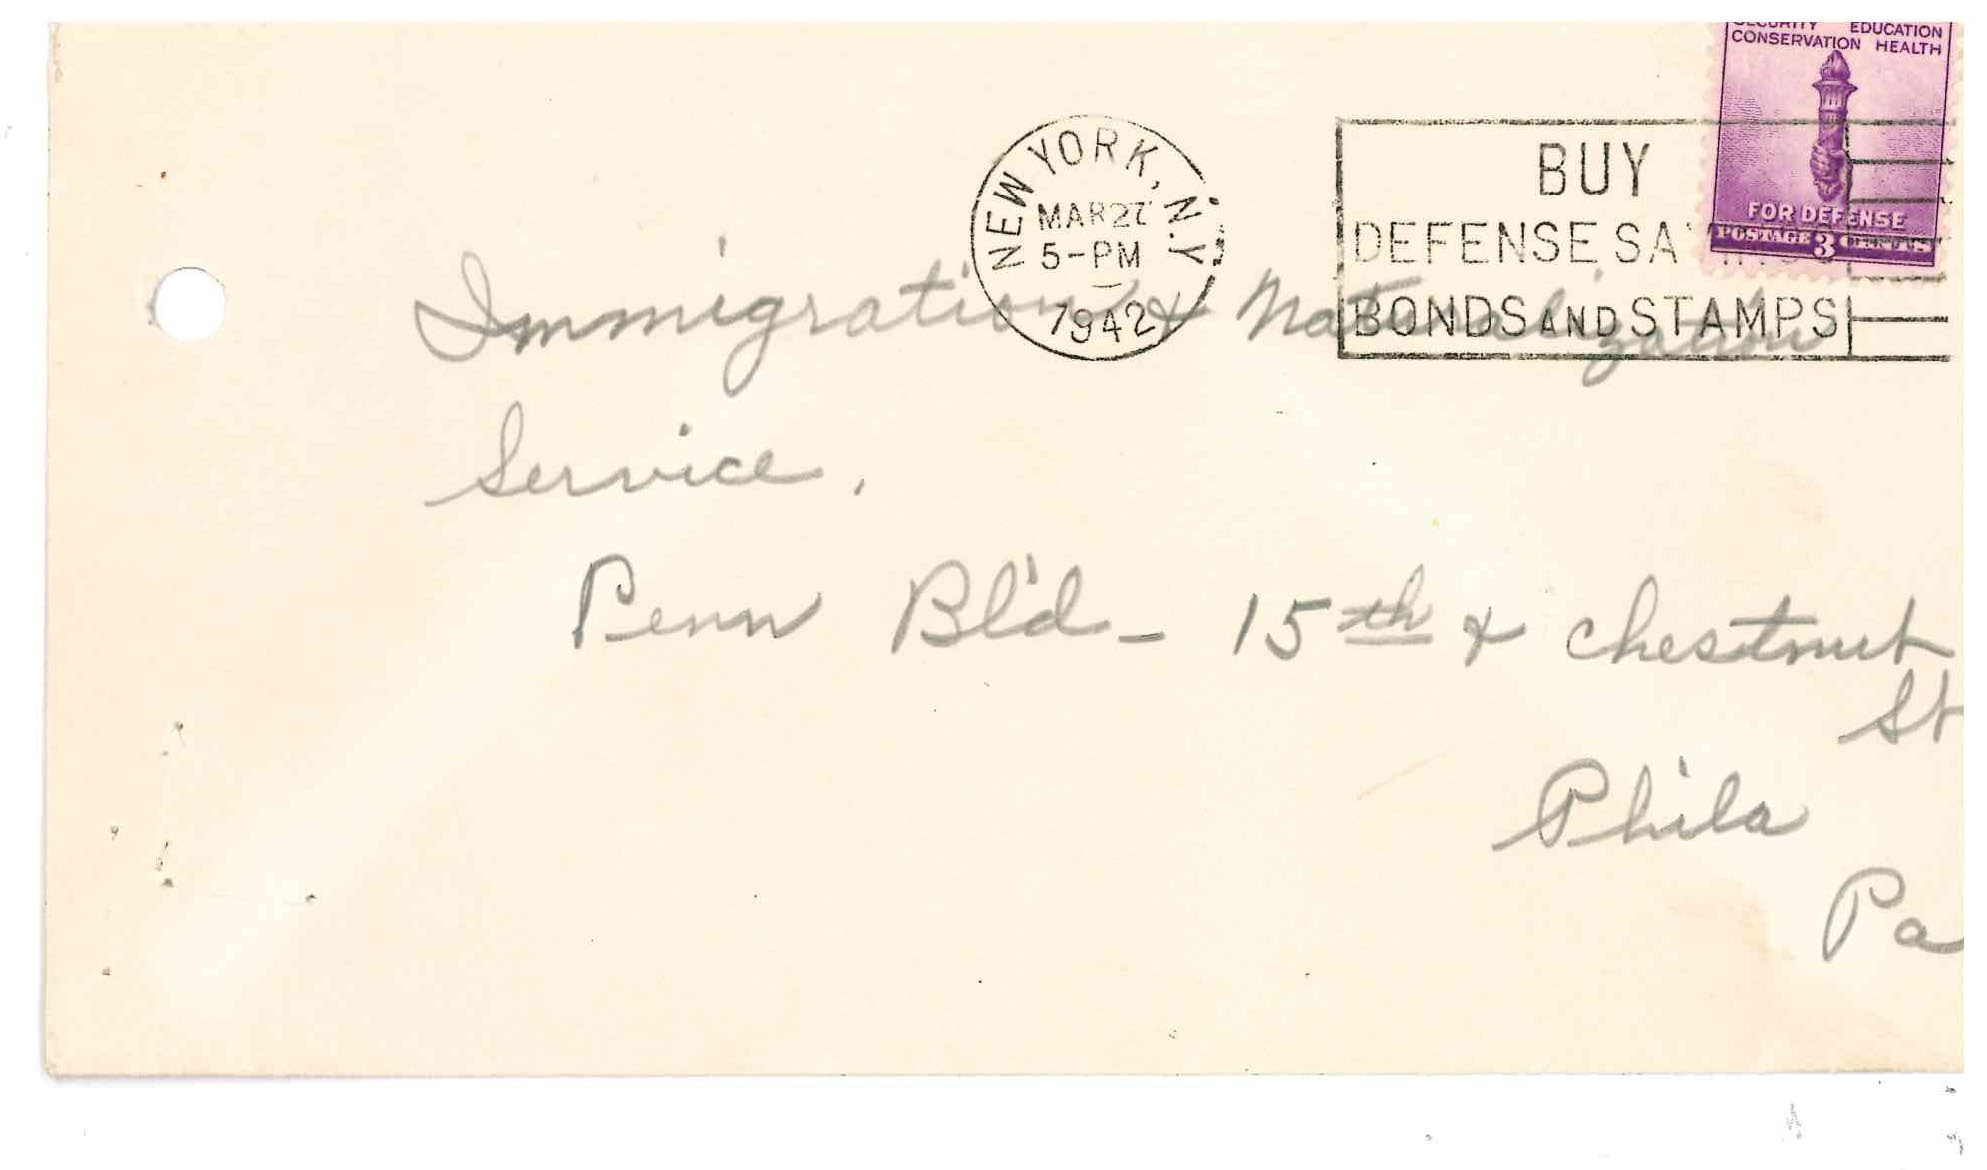 SECURITY EDUCATION
CONSERVATION HEALTH
FOR DEFENSE
POSTAGE 3 CENTS
NEW YORK, N.Y.
MAR 27
5-PM
1942
BUY
DEFENSE SAVINGS
BONDS AND STAMPS
Immigration & Naturalization
Service,
Penn Bl'd - 15th & Chestnut
St
Phila
Pa